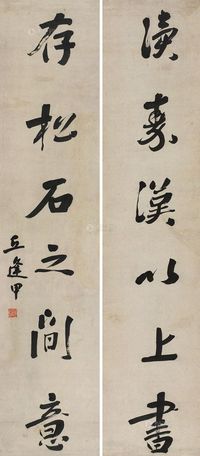 讀秦漢以上書
存松石之間意
丘逢甲